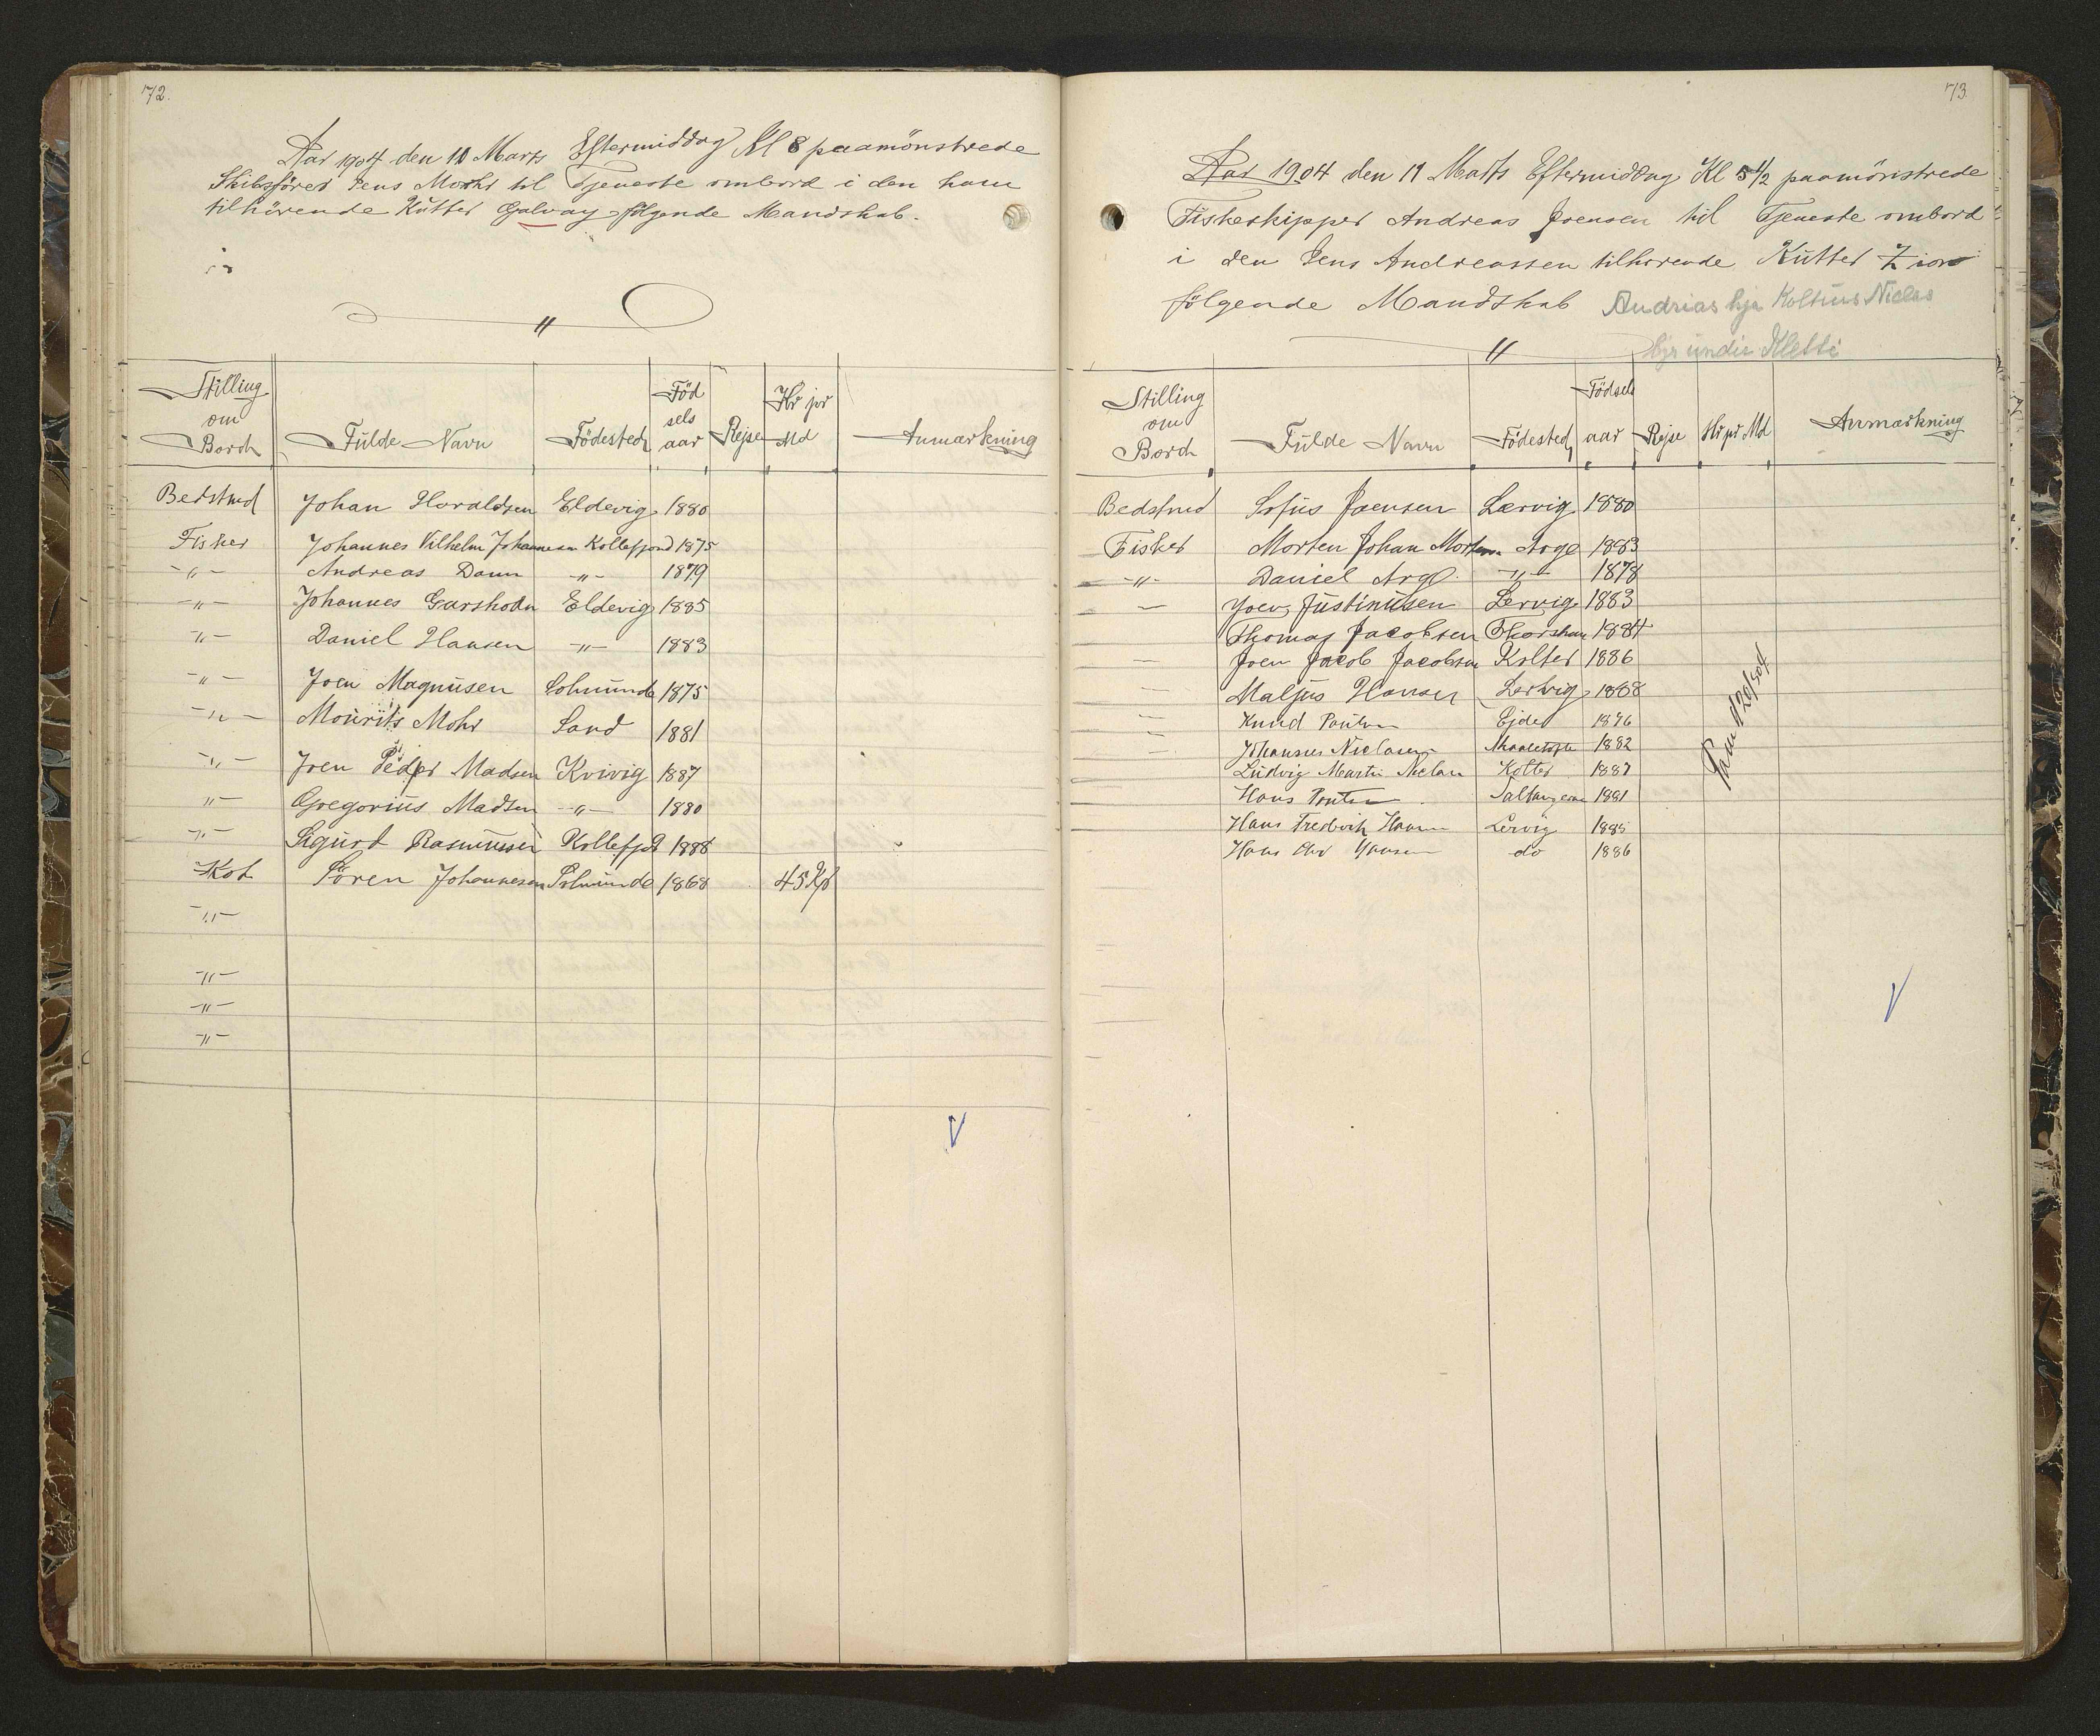 72.
Aar 1904 den 10 Marts Eftermiddag Kl 8 paamönstrede
Skibsförer Jens Mohr til Tjeneste ombord i den ham
tilhörende Kutter Galvay følgende Mandskab.
"
Stilling om Bord Fulde Navn Födested Födsels aar Rejse Kr pr Md Anmærkning
Bedstmd Johan Haraldsen Eldevig 1880
Fisker Johannes Vilhelm Johannesen Kollefjord 1875
-"- Andreas Dam -"- 1879
-"- Johannes Garshodn Eldevig 1885
-"- Daniel Hansen -"- 1883
-"- Joen Magnusen Solmunde 1875
-"- Mourits Mohr Sand 1881
-"- Joen Peder Madsen Kvivig 1887
-"- Gregorius Madsen -"- 1880
-"- Sigurd Rasmussen Kollefjd 1888
Kok Sören Johannesen Solmunde 1868 45 Kr
-"-
-"-
-"-
-"-
73.
Aar 1904 den 11 Marts Eftermiddag Kl 5 1/2 paamönstrede
Fiskeskipper Andreas Joensen til Tjeneste ombord
i den Jens Andreassen tilhörende Kutter Zion
følgende Mandskab Andrias hja Kolturs Niclas
hjr undir Kletti
"
Stilling om Bord Fulde Navn Födested Födsels aar Rejse Kr pr Md Anmærkning
Bedstmd Sofus Joensen Lervig 1880
Fisker Morten Johan Morten. Arge 1883
-"- Daniel Arge -"- 1878
— Joen Justinusen Lervig 1883
Thomas Jacobsen Thorshavn 1884
— Joen Jacob Jacobsen Kolter 1886
— Maljus Hansen Lervig 1868
— Knud Poulsen Ejde 1876
— Johannes Niclasen 1882
— Ludvig Martin Niclasen Kolter 1887
— Hans Poulsen Saltangerne 1881
— Hans Fredrik Hansen Lervig 1885
Hans Chr Hansen do 1886